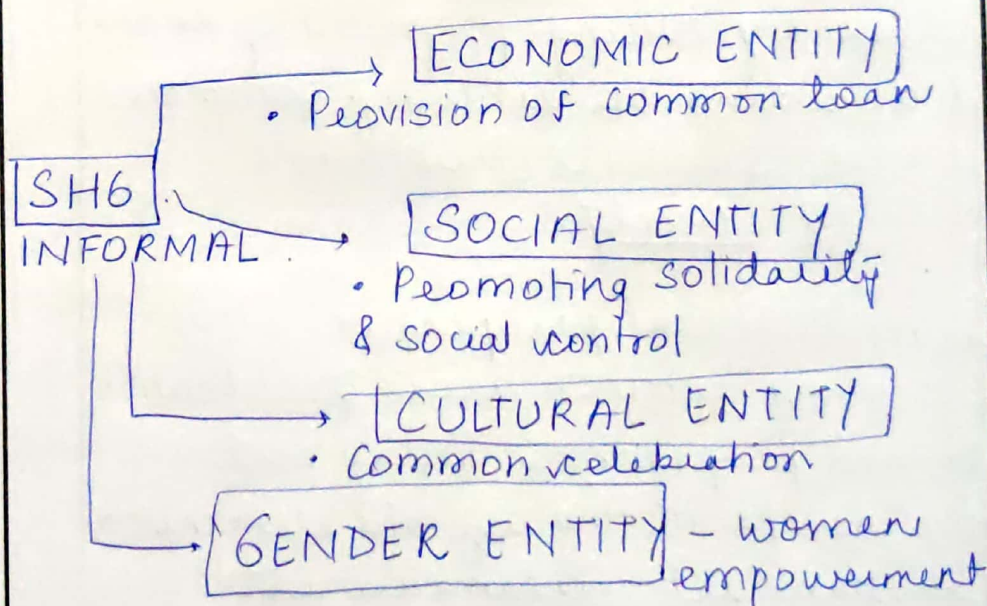 ECONOMIC ENTITY
• Provision of common loan
SHG
INFORMAL
SOCIAL ENTITY
• Promoting solidarity
& social control
CULTURAL ENTITY
• Common celebration
GENDER ENTITY - women
empowerment